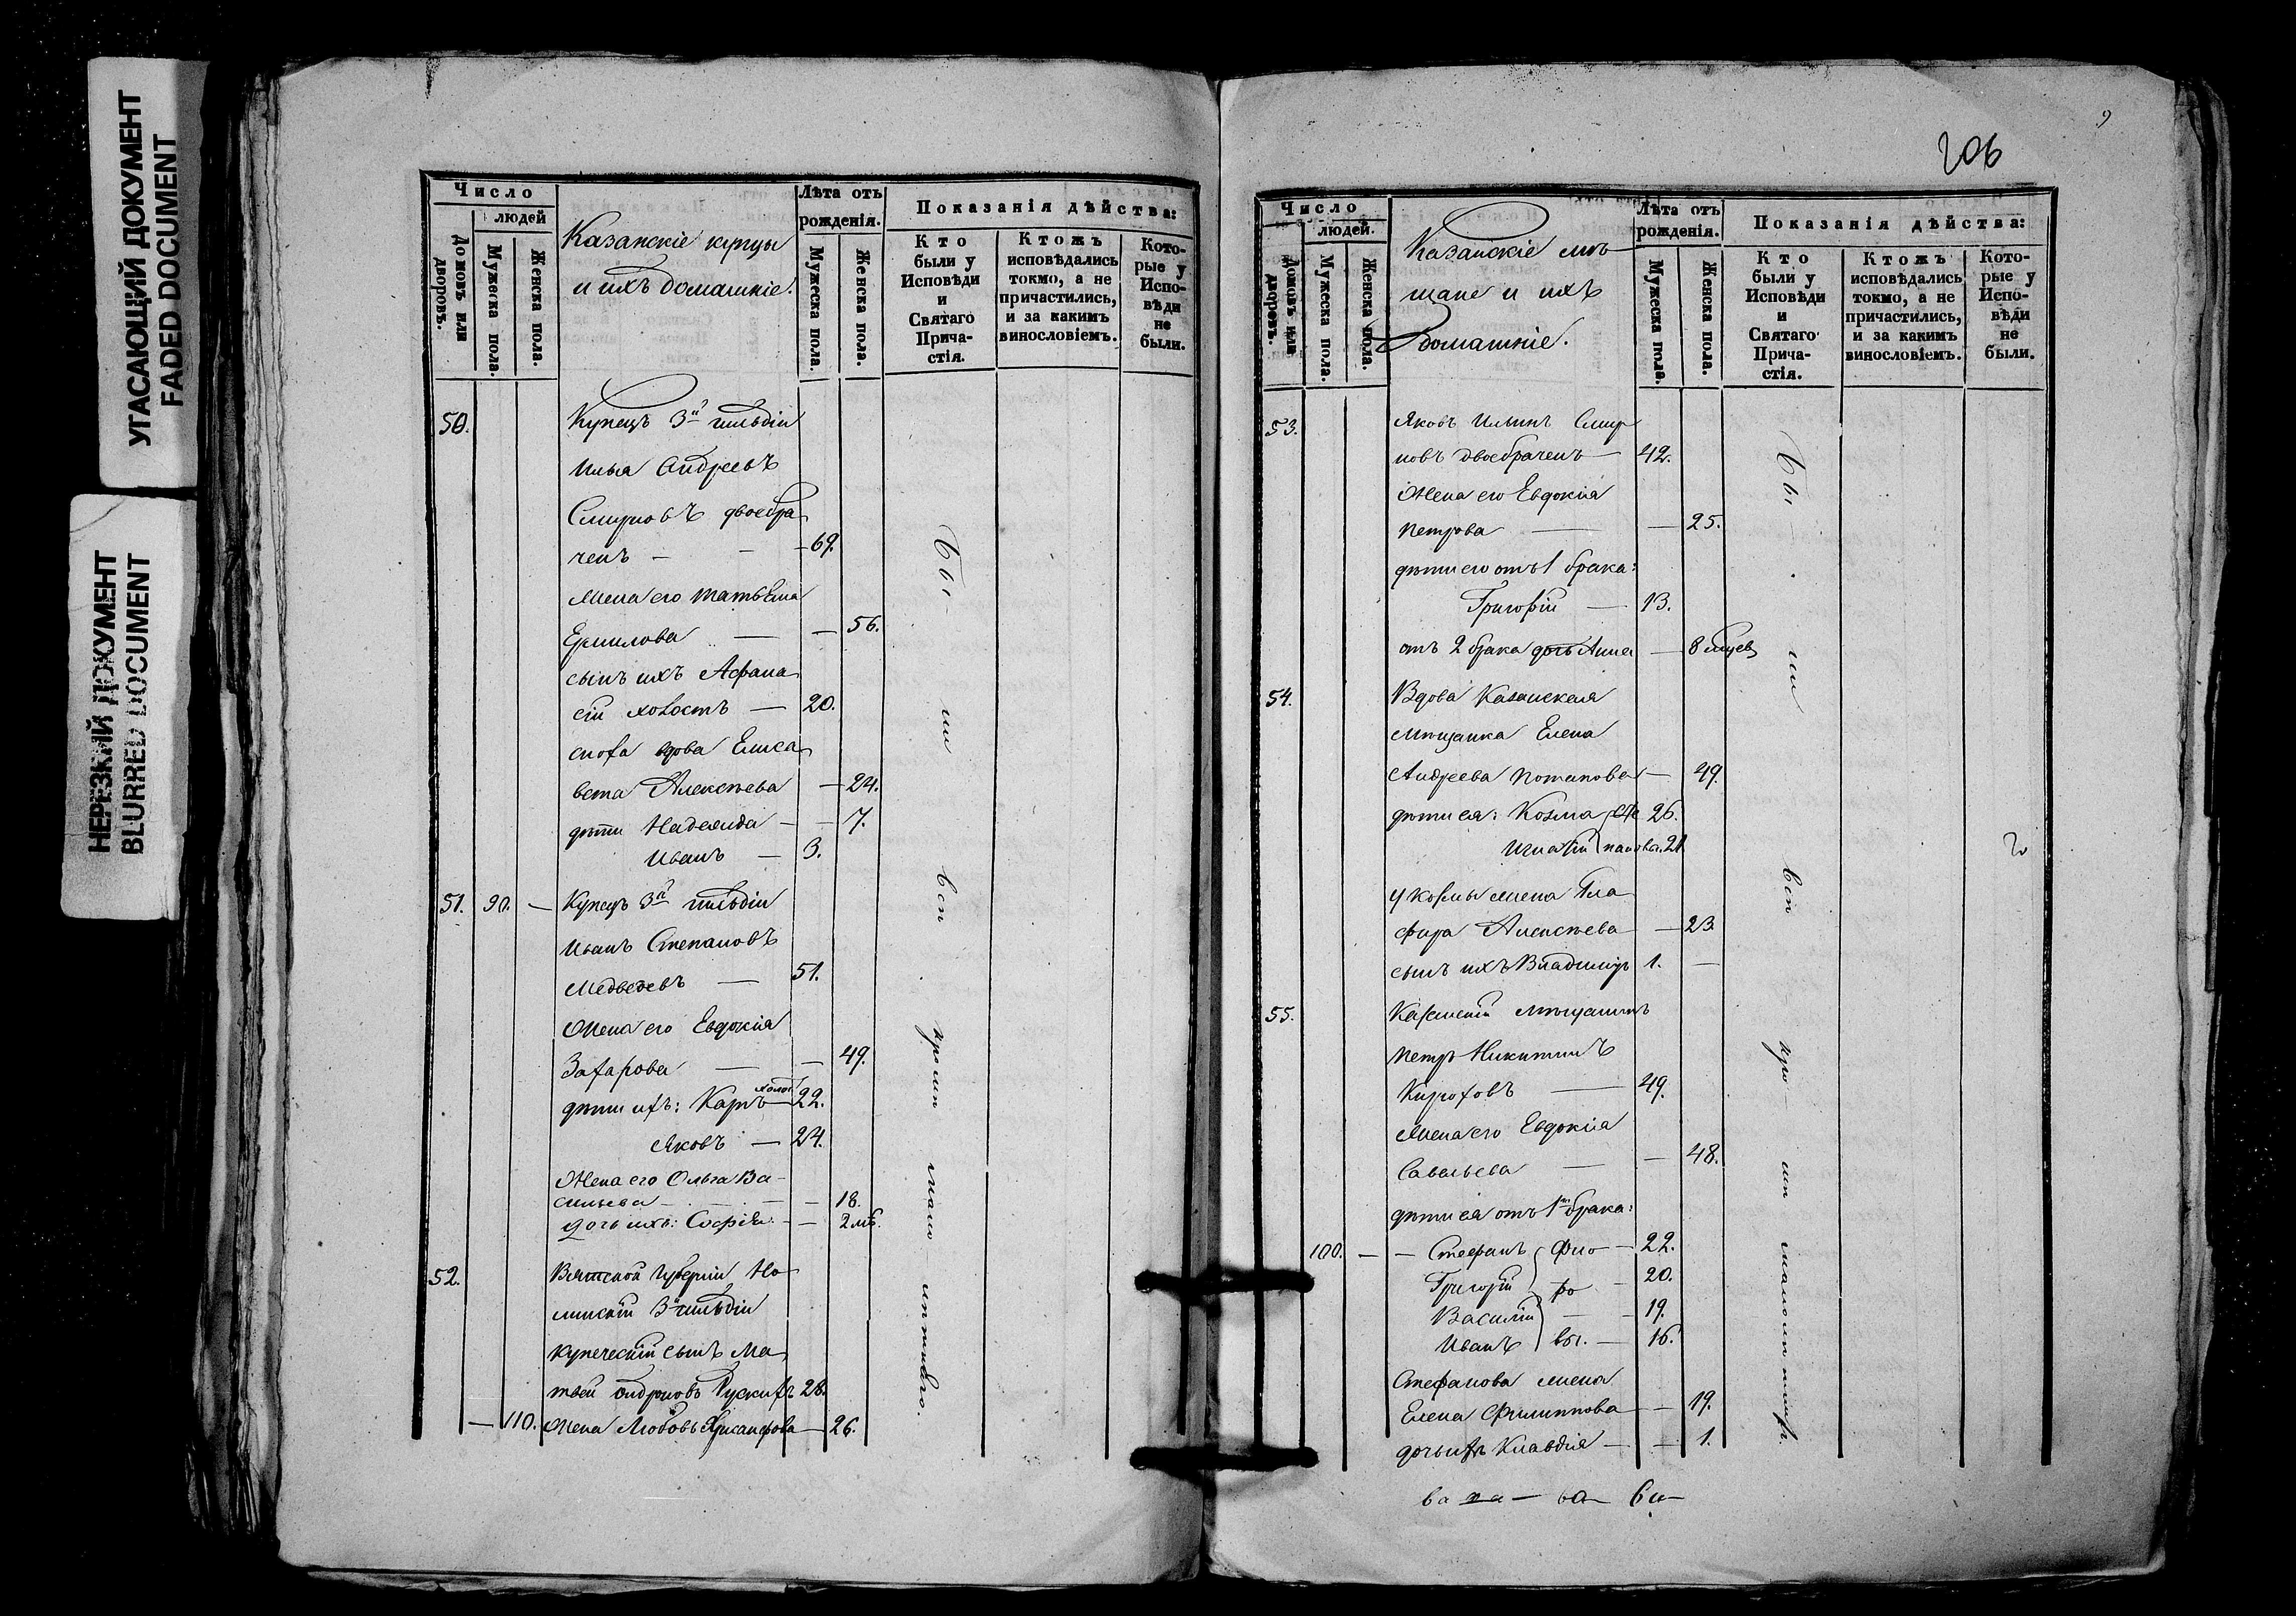 УГАСАЮЩИЙ ДОКУМЕНТ
FADED DOCUMENT
НЕРЕЗКИЙ ДОКУМЕНТ
BLURRED DOCUMENT
Число
людей
Домовъ или дворовъ.
Мужеска пола.
Женска пола.
Казанскіе купцы
и ихъ домашніе.
Лѣта отъ
рожденія.
Мужеска пола.
Женска пола.
Показанія дѣйства:
Кто
были у
Исповѣди
и
Святаго
Прича-
стія.
Ктожъ
исповѣдались
токмо, а не
причастились,
и за какимъ
винословіемъ.
Кото-
рые у
Испо-
вѣди
не
были.
50. Купецъ 3й гильдіи
Илья Андреевъ
Смирновъ двоебра
ченъ - - - 69.
Жена его Татьяна
Ермилова — — 56.
сынъ ихъ Афана
сій холостъ — 20.
сноха вдова Елиса
вета Алексѣева — 24.
дѣти Надежда — — 7.
Иванъ — 3.
51. 90. — Купецъ 3й гильдіи
Иванъ Степановъ
Медведевъ — 51.
Жена его Евдокія
Захарова — — 49.
дѣти ихъ: Карпъ холос. 22.
Яковъ — 24.
Жена его Ольга Ва-
сильева — — — 18.
дочь ихъ: Софія — — 2
52. Вятской Губерніи Но
линскій 3й гильдіи
купеческій сынъ Ма
твей 28.
— 110. Жена Любовь — 26.
Бы - ли всѣ кромѣ мало лѣтняго.
206
Число
людей.
Домовъ или дворовъ.
Мужеска пола.
Женска пола.
Казанскіе мѣ
щане и ихъ
домашніе.
Лѣта отъ
рожденія.
Мужеска пола.
Женска пола.
Показанія дѣйства:
Кто
были у
Исповѣди
и
Святаго
Прича-
стія.
Ктожъ
исповѣдались
токмо, а не
причастились,
и за какимъ
винословіемъ.
Кото-
рые у
Испо-
вѣди
не
были.
53. Яковъ Ильинъ Смир
новъ двоебраченъ — 42.
Жена его Евдокія
Петрова — — 25.
дѣти его отъ 1 брака:
Григорій — 13.
отъ 2 брака дочь Анна — 8
54. Вдова Казанская
Мѣщанка Елена
Андреева Потапова — 49.
дѣти ея: Козма 26.
Игнатій 21
у Козмы жена Гла
фира Алексѣева — 23
сынъ ихъ Владимиръ 1. —
55. Казанскій мѣщанинъ
Петръ Никитинъ
49.
Жена его Евдокія
Савельева — — 48.
дѣти ея отъ 1го брака:
100. — — Стефанъ 22.
Григорій 20.
Василій — — 19.
Иванъ — 16.
Стефанова жена
Елена Филиппова — — 19.
дочь ихъ Клавдія — — 1.
Бы - ли всѣ кро - мѣ